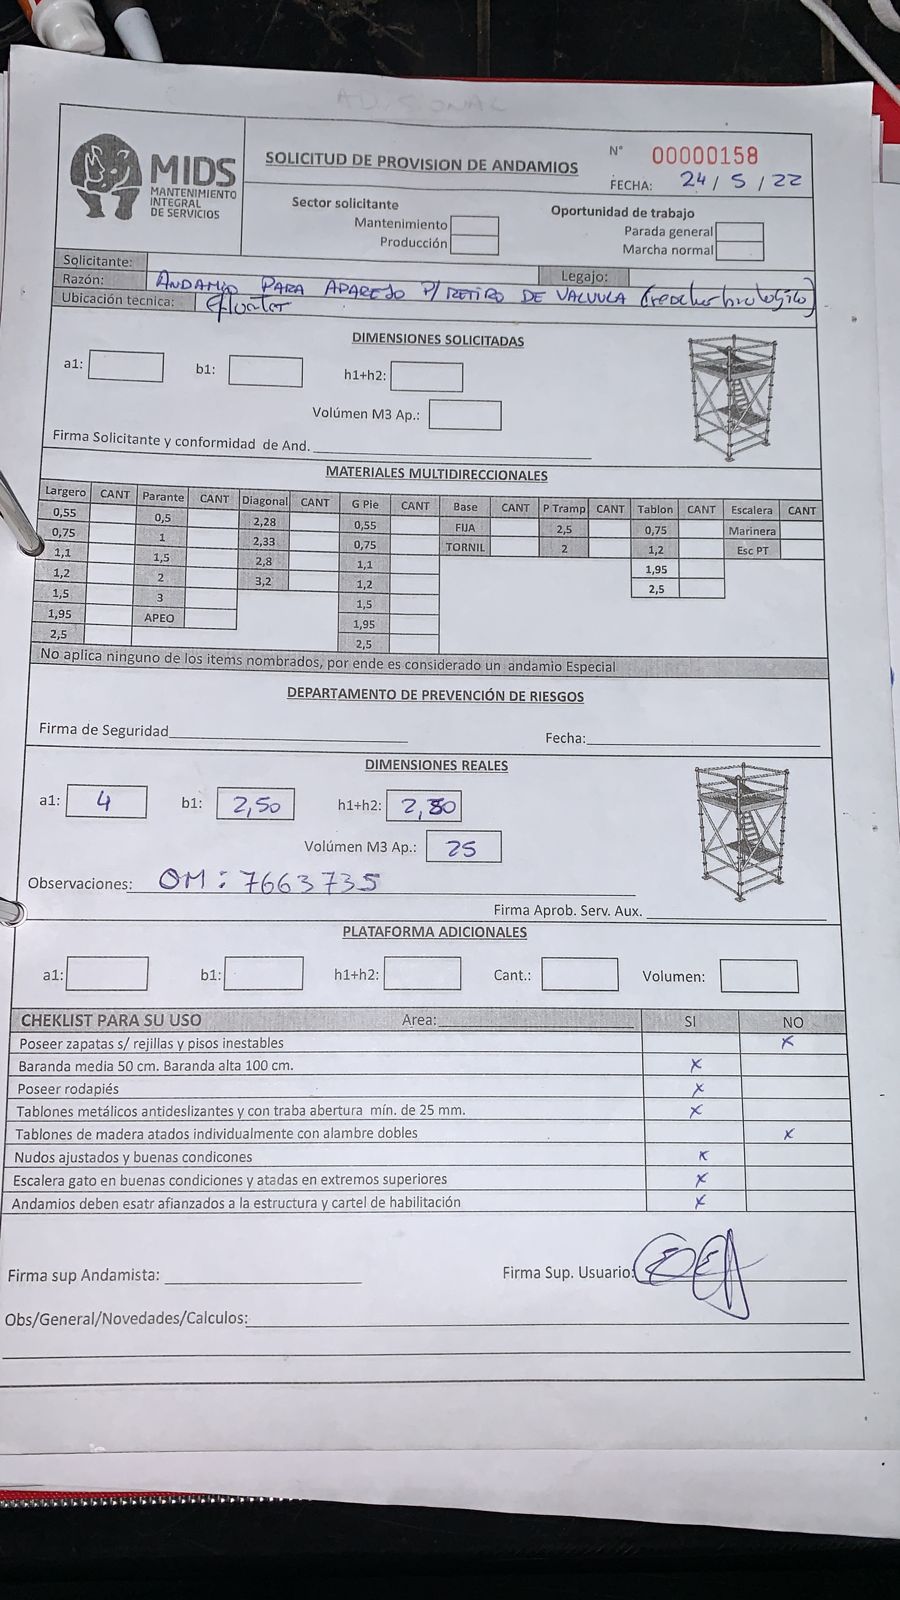 ADISIONAL
MIDS
MANTENIMIENTO
INTEGRAL
DE SERVICIOS
SOLICITUD DE PROVISION DE ANDAMIOS
N° 00000158
FECHA: 24 / 5 / 22
Sector solicitante
Mantenimiento
Producción
Oportunidad de trabajo
Parada general
Marcha normal
Solicitante:
Legajo:
Razón: ANDAMIO PARA APAREJO P/ RETIRO DE VALVULA
Ubicación tecnica:
DIMENSIONES SOLICITADAS
a1: b1: h1+h2:
Volúmen M3 Ap.:
Firma Solicitante y conformidad de And.
MATERIALES MULTIDIRECCIONALES
Largero CANT Parante CANT Diagonal CANT G Pie CANT Base CANT P Tramp CANT Tablon CANT Escalera CANT
0,55 0,5 2,28 0,55 FIJA 2,5 0,75 Marinera
0,75 1 2,33 0,75 TORNIL 2 1,2 Esc PT
1,1 1,5 2,8 1,1 1,95
1,2 2 3,2 1,2 2,5
1,5 3 1,5
1,95 APEO 1,95
2,5 2,5
No aplica ninguno de los items nombrados, por ende es considerado un andamio Especial
DEPARTAMENTO DE PREVENCIÓN DE RIESGOS
Firma de Seguridad Fecha:
DIMENSIONES REALES
a1: 4 b1: 2,50 h1+h2: 2,50
Volúmen M3 Ap.: 25
Observaciones: OM: 7663735
Firma Aprob. Serv. Aux.
PLATAFORMA ADICIONALES
a1: b1: h1+h2: Cant.: Volumen:
CHEKLIST PARA SU USO Area: SI NO
Poseer zapatas s/ rejillas y pisos inestables x
Baranda media 50 cm. Baranda alta 100 cm. x
Poseer rodapiés x
Tablones metálicos antideslizantes y con traba abertura mín. de 25 mm. x
Tablones de madera atados individualmente con alambre dobles x
Nudos ajustados y buenas condicones x
Escalera gato en buenas condiciones y atadas en extremos superiores x
Andamios deben esatr afianzados a la estructura y cartel de habilitación x
Firma sup Andamista:
Firma Sup. Usuario:
Obs/General/Novedades/Calculos: